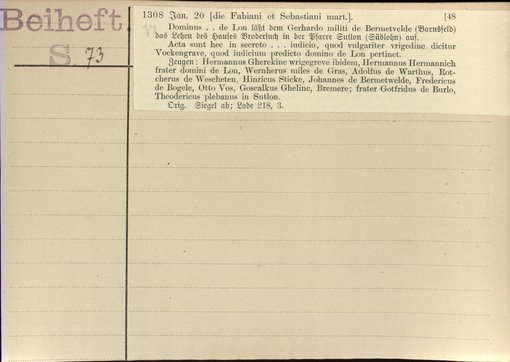 Beiheft
S. 73
1308 Jan. 20 [die Fabiani et Sebastiani mart.]. [48
Dominus . . de Lon läßt dem Gerhardo militi de Bermetvelde (Barnsfeld)
das Lehen des Hauses Broderinch in der Pfarre Sutlon (Südlohn) auf.
Acta sunt hec in secreto . . . iudicio, quod vulgariter vrigedinc dicitur
Vockengrave, quod iudicium predicto domino de Lon pertinet.
Zeugen: Hermannus Gherekinc wrigegreve ibidem, Hermannus Hermannich
frater domini de Lon, Wernherus miles de Gras, Adolfus de Warthus, Rot-
cherus de Wescheten, Hinricus Sticke, Johannes de Bermetwelde, Fredericus
de Bogele, Otto Vos, Goscalkus Ghelinc, Bremere; frater Gotfridus de Burlo,
Theodericus plebanus in Sutlon.
Orig. Siegel ab; Lade 218, 3.